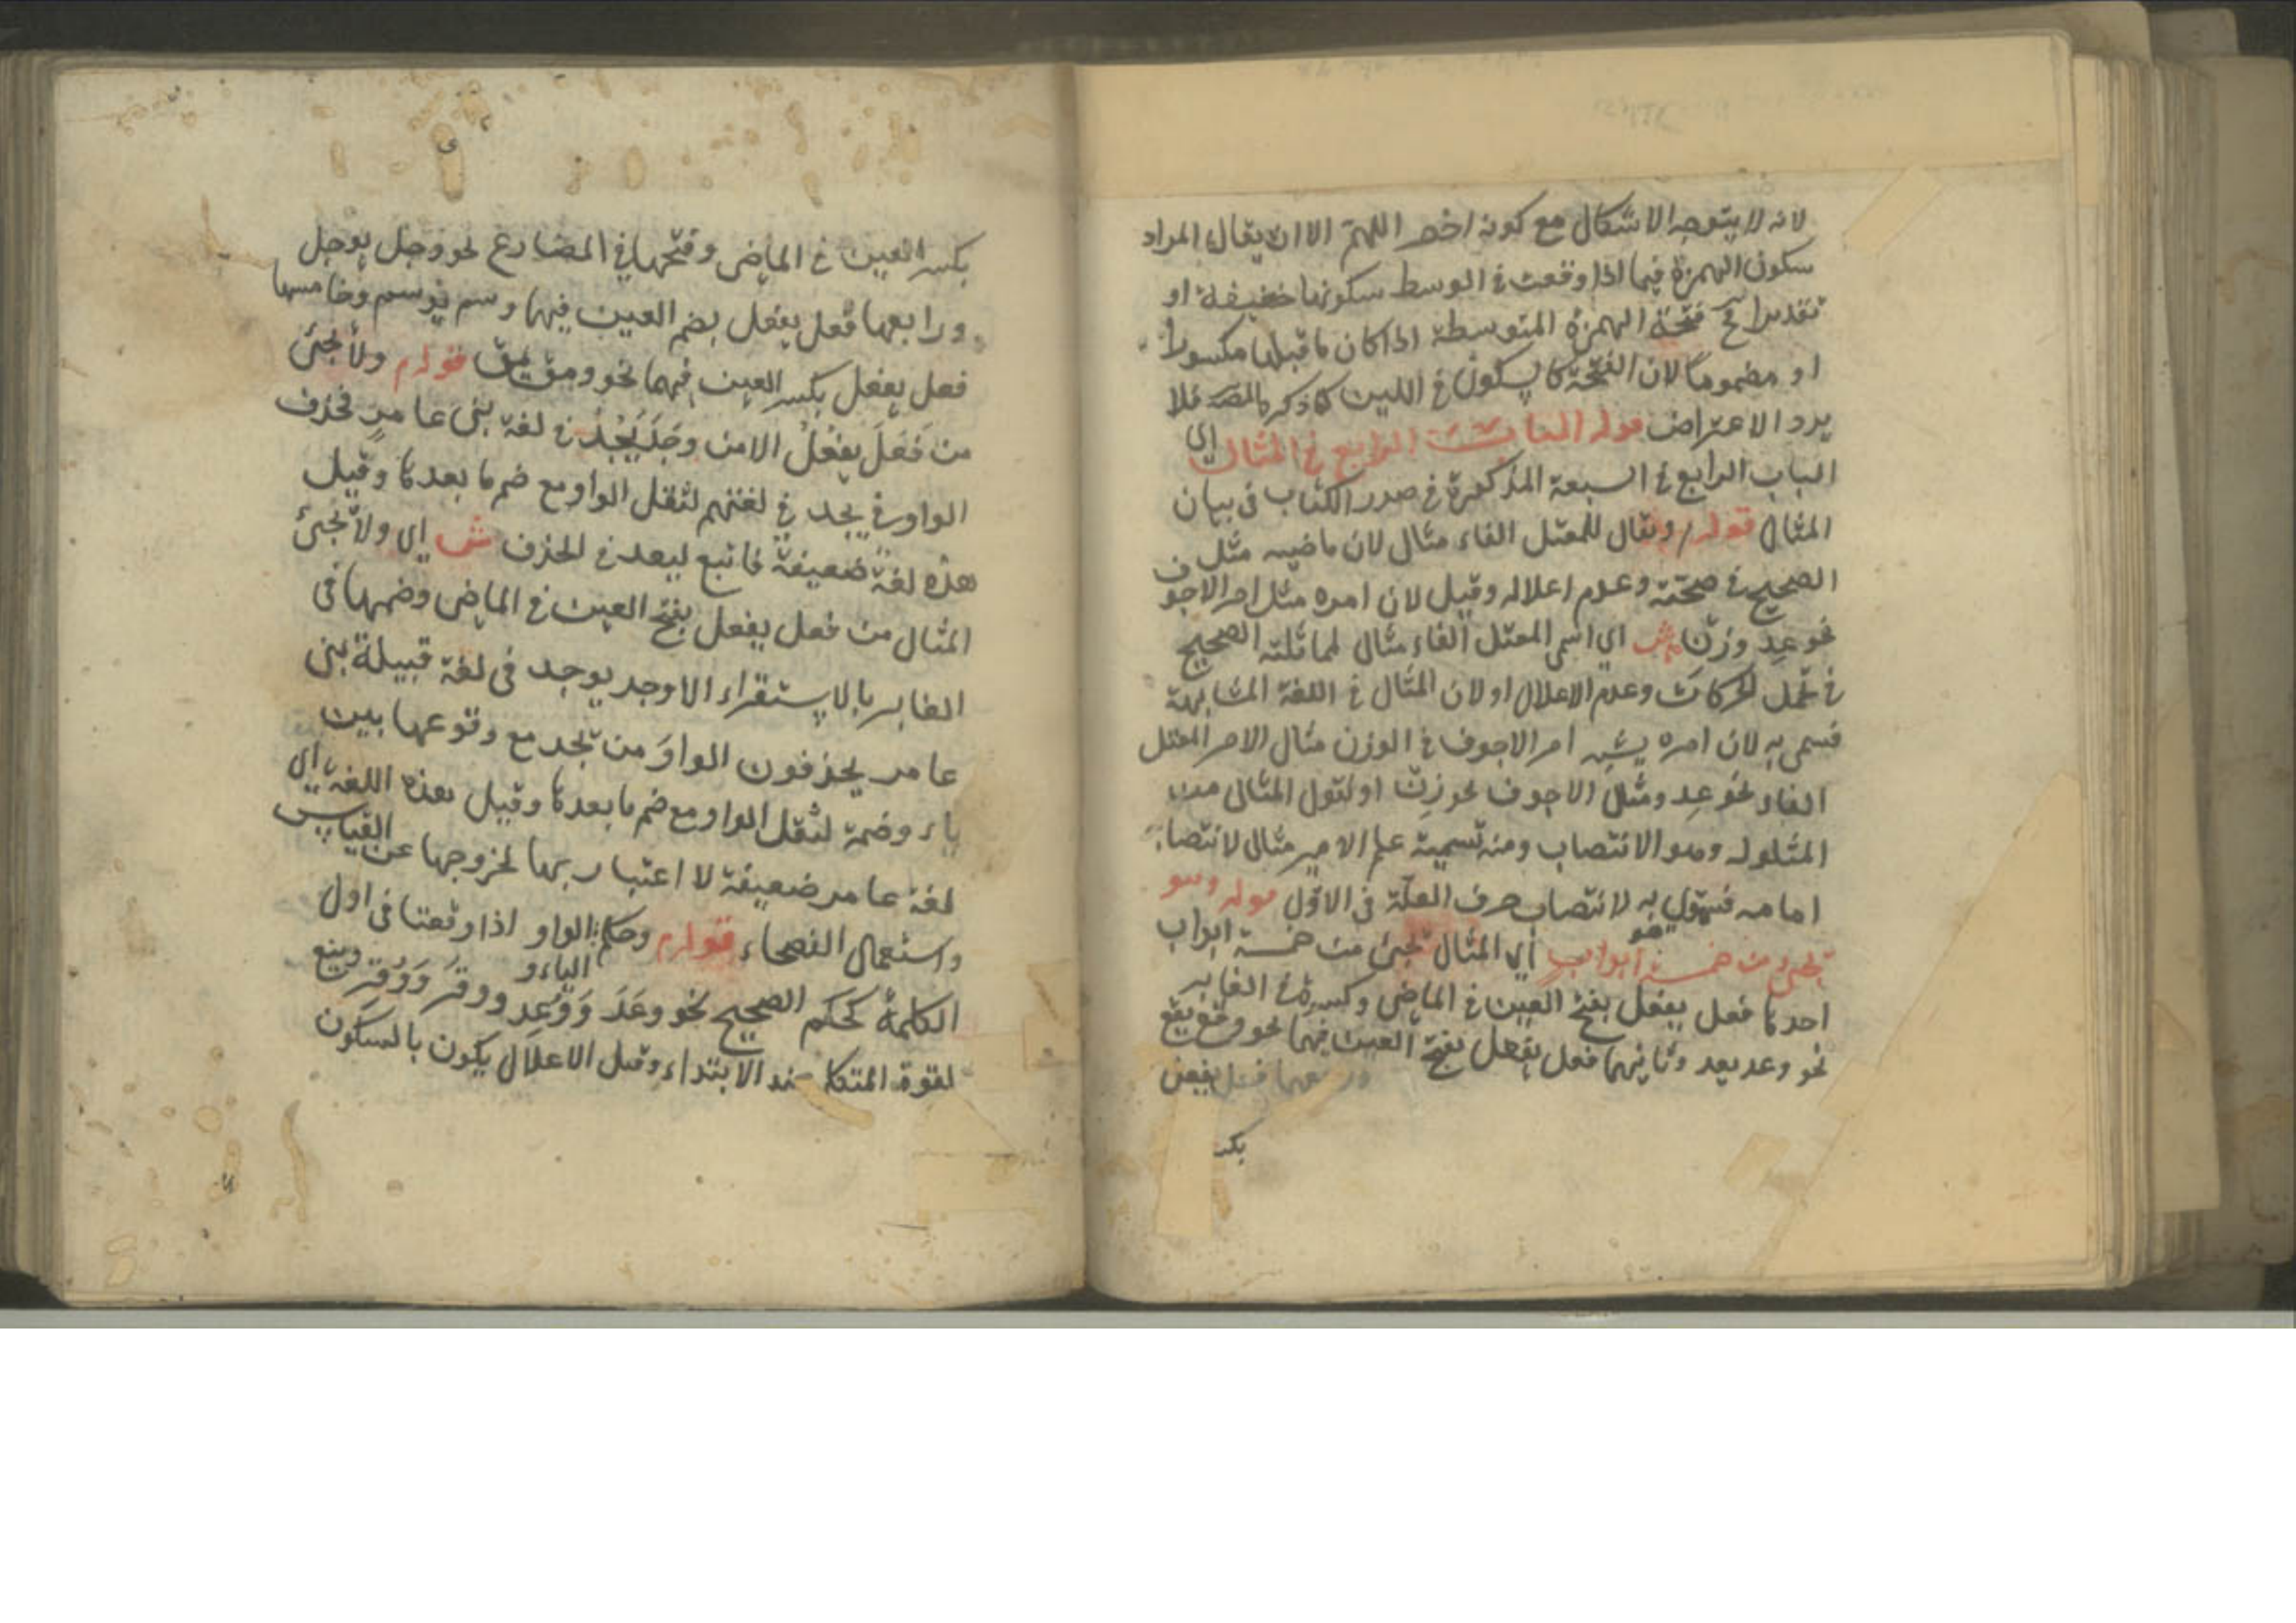 لانه لا يتوجه الاشكال مع كونه اخص اللهم الا ان يقال المراد
سكون الهمزة فيما اذا وقعت في الوسط سكونها حقيقة او
تقديرا فتحة الهمزة المتوسطة اذا كان ما قبلها مكسورا
او مضموما لان الفتحة كالسكون في اللين كما ذكره المصـ فلا
يرد الاعتراض قوله الباب الرابع في المثال اي
الباب الرابع في السبعة المذكورة في صدر الكتاب في بيان
المثال قوله ويقال للمعتل الفاء مثال لان ماضيه مثل
الصحيح في صحته وعدم اعلاله وقيل لان امره مثل امر الاجوف
نحو عِد وزِن ش اي اسمى المعتل الفاء مثال لمماثلته الصحيح
في تحمل الحركات وعدم الاعلال او لان المثال في اللغة المشابهة
فسمى به لان امره يشبه امر الاجوف في الوزن مثال الامر المعتل
الفاء نحو عِد ومثل الاجوف نحو زِن او لقول المثال من
المثلول وهو الانتصاب ومنه تسمية علم الامير مثال لانتصابه
امامه به لانتصاب حرف العلة في الاول قوله وهو
يجئ من خمسة ابواب اي المثال يجئ من خمسة ابواب
احدها فعل يفعل بفتح العين في الماضي وكسرها في الغابر
نحو وعد يعد وثانيهما فعل يفعل بفتح العين فيهما نحو وقع يقع
فعل يفعل
بكسـ
بكسر العين في الماضي وفتحها في المضارع نحو وجل يوجل
ورابعها فعل يفعل بضم العين فيهما وسم يوسم وخامسها
فعل يفعل بكسر العين فيهما نحو ومق يمق قوله ولا يجئ
من فَعَلَ يفعُلُ الا من وَجَدَ يَجُدُ في لغة بنى عامر فحذف
الواو في يجد في لغتهم لثقل الواو مع ضم ما بعدها وقيل
هذه لغة ضعيفة فاتبع ليعد في الحذف ش اي ولا يجئ
المثال من فعل يفعل بفتح العين في الماضي وضمها في
الغابر بالاستقراء الا وجد يوجد في لغة قبيلة بنى
عامر يحذفون الواوَ من يجد مع وقوعها بين
ياء وضمة لثقل الواو مع ضم ما بعدها وقيل هذه اللغة اي
لغة عامر ضعيفة لا اعتبار بها لخروجها عن القياس
واستعمال الفصحاء قوله وحكم الواو والياء اذا وقعتا في اول
الكلمة كحكم الصحيح نحو وعَدَ وَوُعِد ووقَرَ وَوُقِرَ وينع
لقوة المتكلم عند الابتداء وقيل الاعلال يكون بالسكون